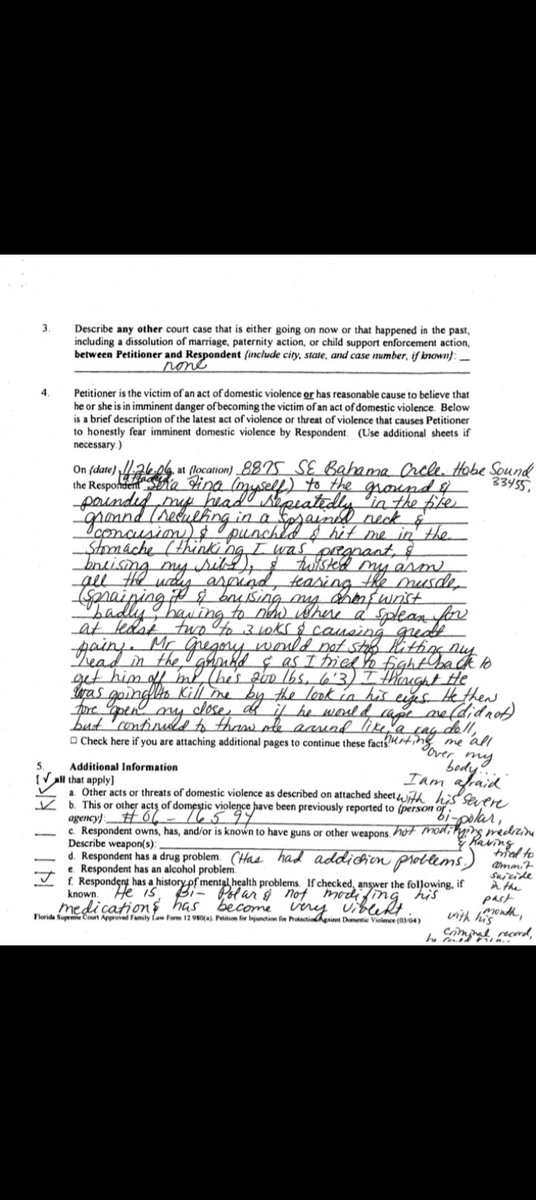 3. Describe any other court case that is either going on now or that happened in the past,
including a dissolution of marriage, paternity action, or child support enforcement action,
between Petitioner and Respondent {include city, state, and case number, if known}:
none
4. Petitioner is the victim of an act of domestic violence or has reasonable cause to believe that
he or she is in imminent danger of becoming the victim of an act of domestic violence. Below
is a brief description of the latest act of violence or threat of violence that causes Petitioner
to honestly fear imminent domestic violence by Respondent. (Use additional sheets if
necessary.)
On {date} 11.26.06, at {location} 8875 SE Bahama Circle, Hobe Sound
33455,
the Respondent Sera Fina (myself) to the ground &
pounded my head repeatedly in the
ground (resulting in a sprained neck &
concusion) & punched & hit me in the
Stomache (thinking I was pregnant, &
bruising my ribs), & twisted my arm
all the way around, tearing the muscle,
(spraining it & bruising my arm & wrist
badly, having to now where a splean for
at least two to 3 wks & causing great
pain. Mr Gregory would not stop hitting my
head in the ground & as I tried to fight back to
get him off me, (he's 200 lbs, 6'3) I thought He
was going to kill me by the look in his eyes. He then
tore open my close, as if he would rape me (did not)
but continued to throw me around like a rag doll,
hurting me all
over my
body...
□ Check here if you are attaching additional pages to continue these facts.
5. Additional Information
[√ all that apply]
I am afraid
with his severe
bi-polar,
not modifying medicine
& having
tried to
commit
suicide
in the
past
month,
with his
criminal record,
√ a. Other acts or threats of domestic violence as described on attached sheet.
√ b. This or other acts of domestic violence have been previously reported to {person or
agency}: #06-16594
c. Respondent owns, has, and/or is known to have guns or other weapons.
Describe weapon(s):
d. Respondent has a drug problem. (Has had addiction problems.)
e. Respondent has an alcohol problem.
√ f. Respondent has a history of mental health problems. If checked, answer the following, if
known. He is Bi-Polar & not modifing his
medication & has become very violent.
Florida Supreme Court Approved Family Law Form 12.980(a), Petition for Injunction for Protection Against Domestic Violence (03/04)